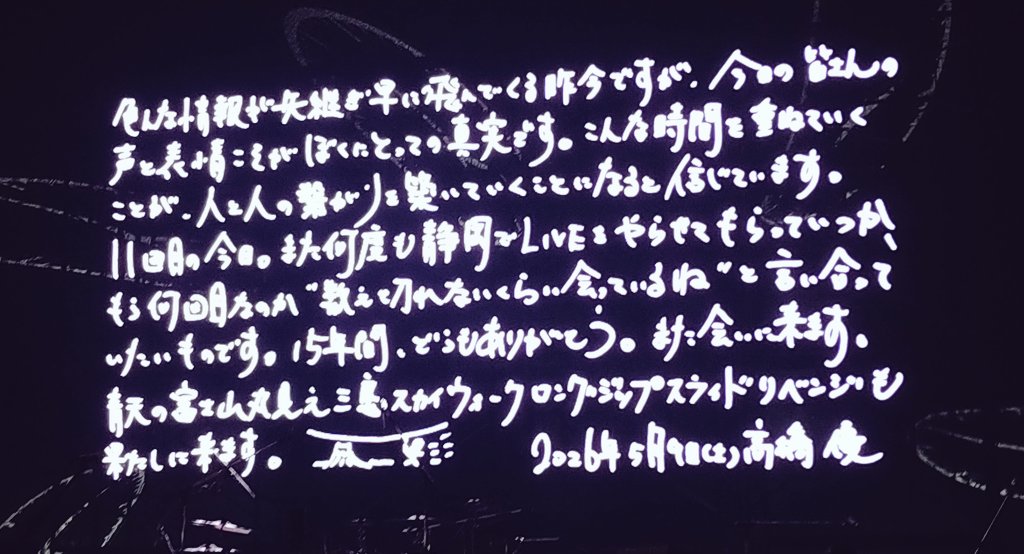 色んな情報が矢継ぎ早に飛んでくる昨今ですが、今日の皆さんの
声と表情こそがぼくにとっての真実です。こんな時間を重ねていく
ことが、人と人の繋がりを築いていくことになると信じています。
11回目の今日。また何度も静岡でLIVEをやらせてもらっていつか、
もう何回目なのか“数えて切れないくらい会っているね”と言い合って
いたいものです。15年間、どうもありがとう。また会いに来ます。
青天の富士山丸見え三島スカイウォークロングジップスライドリベンジも
果たしに来ます。 2026年5月9日(土)高橋優